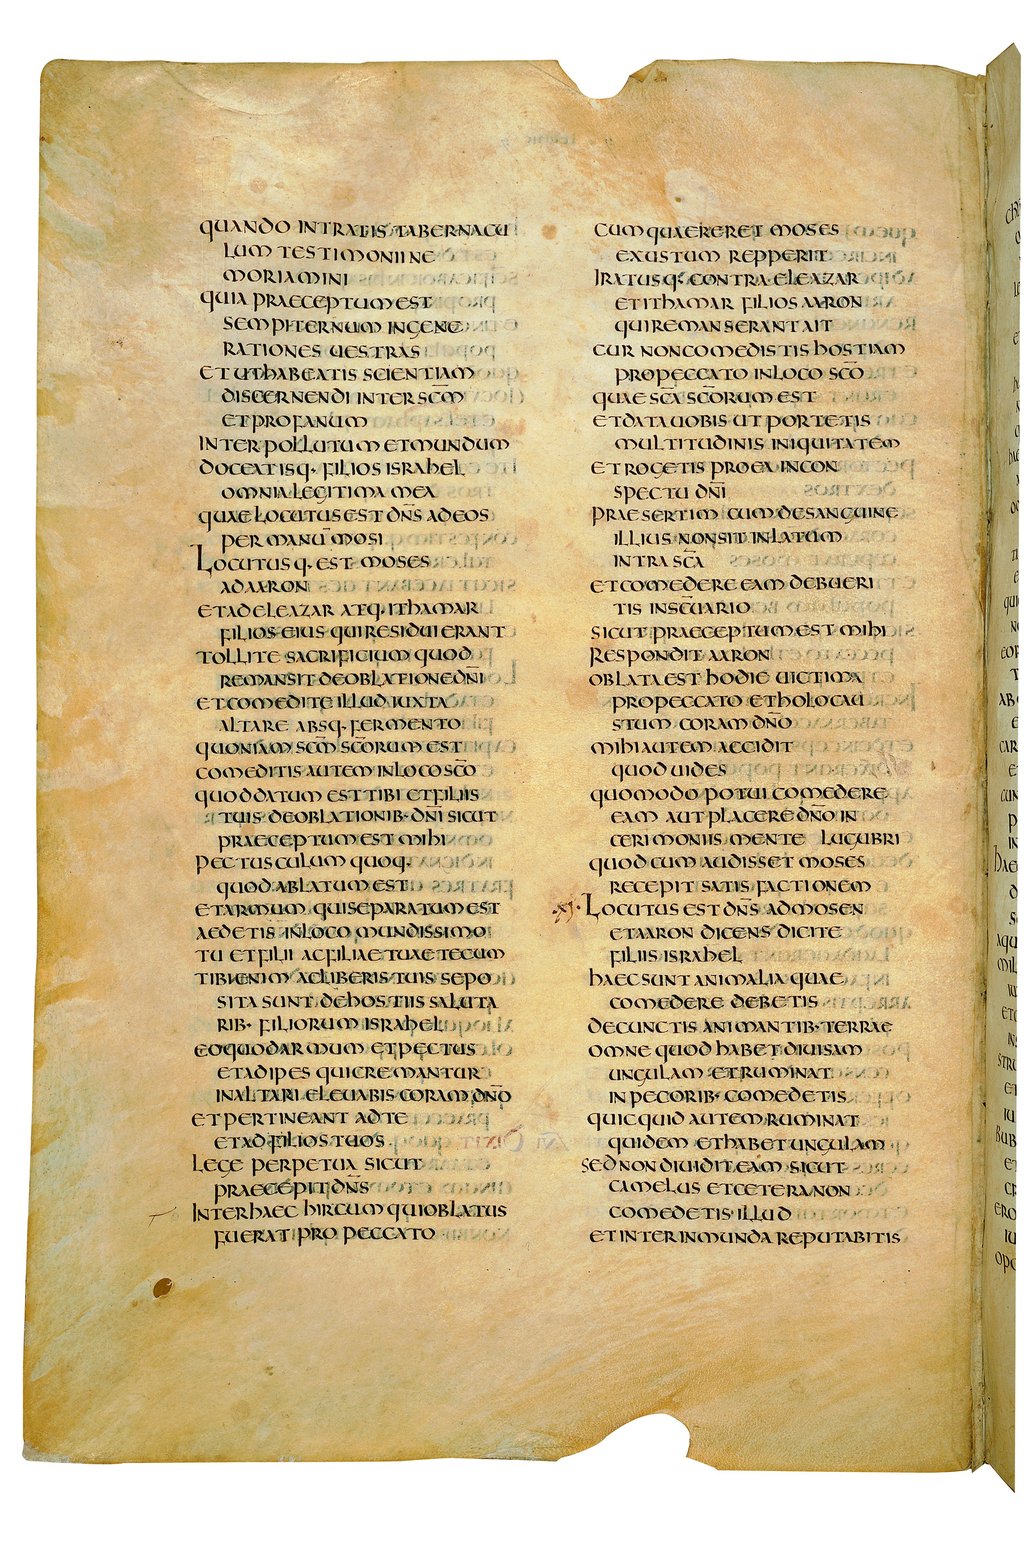 QUANDO INTRATIS TABERNACU
LUM TESTIMONII NE
MORIAMINI
QUIA PRAECEPTUM EST
SEMPITERNUM INGENE
RATIONES UESTRAS
ET UT HABEATIS SCIENTIAM
DISCERNENDI INTER SC̄M
ET PROFANUM
INTER POLLUTUM ET MUNDUM
DOCEATISQ· FILIOS ISRAHEL
OMNIA LEGITIMA MEA
QUAE LOCUTUS EST DN̄S AD EOS
PER MANŪ MOSI
LOCUTUSQ· EST MOSES
AD AARON
ET AD ELEAZAR ATQ· ITHAMAR
FILIOS EIUS QUI RESIDUI ERANT
TOLLITE SACRIFICIUM QUOD
REMANSIT DE OBLATIONE DN̄I
ET COMEDITE ILLUD IUXTA
ALTARE ABSQ· FERMENTO
QUONIAM SC̄M SC̄ORUM EST
COMEDITIS AUTEM IN LOCO SC̄O
QUOD DATUM EST TIBI ET FILIIS
TUIS DE OBLATIONIB· DN̄I SICUT
PRAECEPTUM EST MIHI
PECTUSCULUM QUOQ·
QUOD ABLATUM EST
ET ARMUM QUI SEPARATUM EST
AEDETIS IN LOCO MUNDISSIMO
TU ET FILII AC FILIAE TUAE TECUM
TIBI ENIM AC LIBERIS TUIS SEPO
SITA SUNT DE HOSTIIS SALUTA
RIB· FILIORUM ISRAHEL
EO QUOD ARMUM ET PECTUS
ET ADIPES QUI CREMANTUR
IN ALTARI ELEUABIS CORAM DN̄O
ET PERTINEANT AD TE
ET AD FILIOS TUOS
LEGE PERPETUA SICUT
PRAECEPIT DN̄S
INTER HAEC HIRCUM QUI OBLATUS
FUERAT PRO PECCATO
CUM QUAERERET MOSES
EXUSTUM REPPERIT
IRATUSQ· CONTRA ELEAZAR
ET ITHAMAR FILIOS AARON
QUI REMANSERANT AIT
CUR NON COMEDISTIS HOSTIAM
PRO PECCATO IN LOCO SC̄O
QUAE SC̄A SC̄ORUM EST
ET DATA UOBIS UT PORTETIS
MULTITUDINIS INIQUITATEM
ET ROGETIS PRO EA IN CON
SPECTU DN̄I
PRAESERTIM CUM DE SANGUINE
ILLIUS NON SIT INLATUM
INTRA SC̄A
ET COMEDERE EAM DEBUERI
TIS IN SC̄UARIO
SICUT PRAECEPTUM EST MIHI
RESPONDIT AARON
OBLATA EST HODIE UICTIMA
PRO PECCATO ET HOLOCAU
STUM CORAM DN̄O
MIHI AUTEM ACCIDIT
QUOD UIDES
QUOMODO POTUI COMEDERE
EAM AUT PLACERE DN̄O IN
CERIMONIIS MENTE LUGUBRI
QUOD CUM AUDISSET MOSES
RECEPIT SATISFACTIONEM
·XI· LOCUTUS EST DN̄S AD MOSEN
ET AARON DICENS DICITE
FILIIS ISRAHEL
HAEC SUNT ANIMALIA QUAE
COMEDERE DEBETIS
DE CUNCTIS ANIMANTIB· TERRAE
OMNE QUOD HABET DIUISAM
UNGULAM ET RUMINAT
IN PECORIB· COMEDETIS
QUICQUID AUTEM RUMINAT
QUIDEM ET HABET UNGULAM
SED NON DIUIDIT EAM SICUT
CAMELUS ET CETERA NON
COMEDETIS ILLUD
ET INTER INMUNDA REPUTABITIS